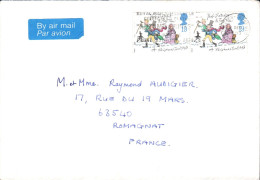 By air mail
Par avion
M. et Mme. Raymond AUDIGIER.
17, RUE DU 19 MARS.
63540
ROMAGNAT
FRANCE.